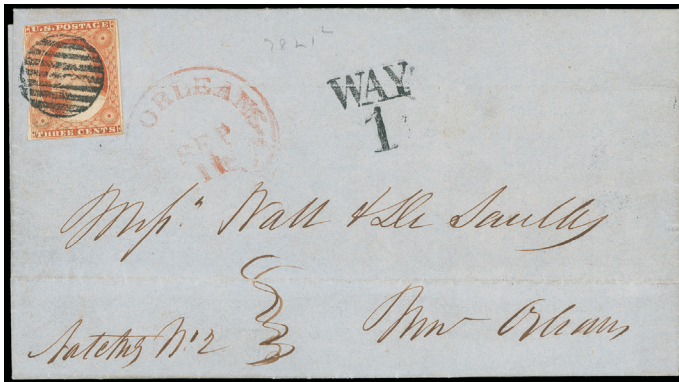 U.S. POSTAGE
THREE CENTS
ORLEANS
SEP
WAY
1
Mess.rs Watt & De Saulles
New Orleans
Natchez No. 2